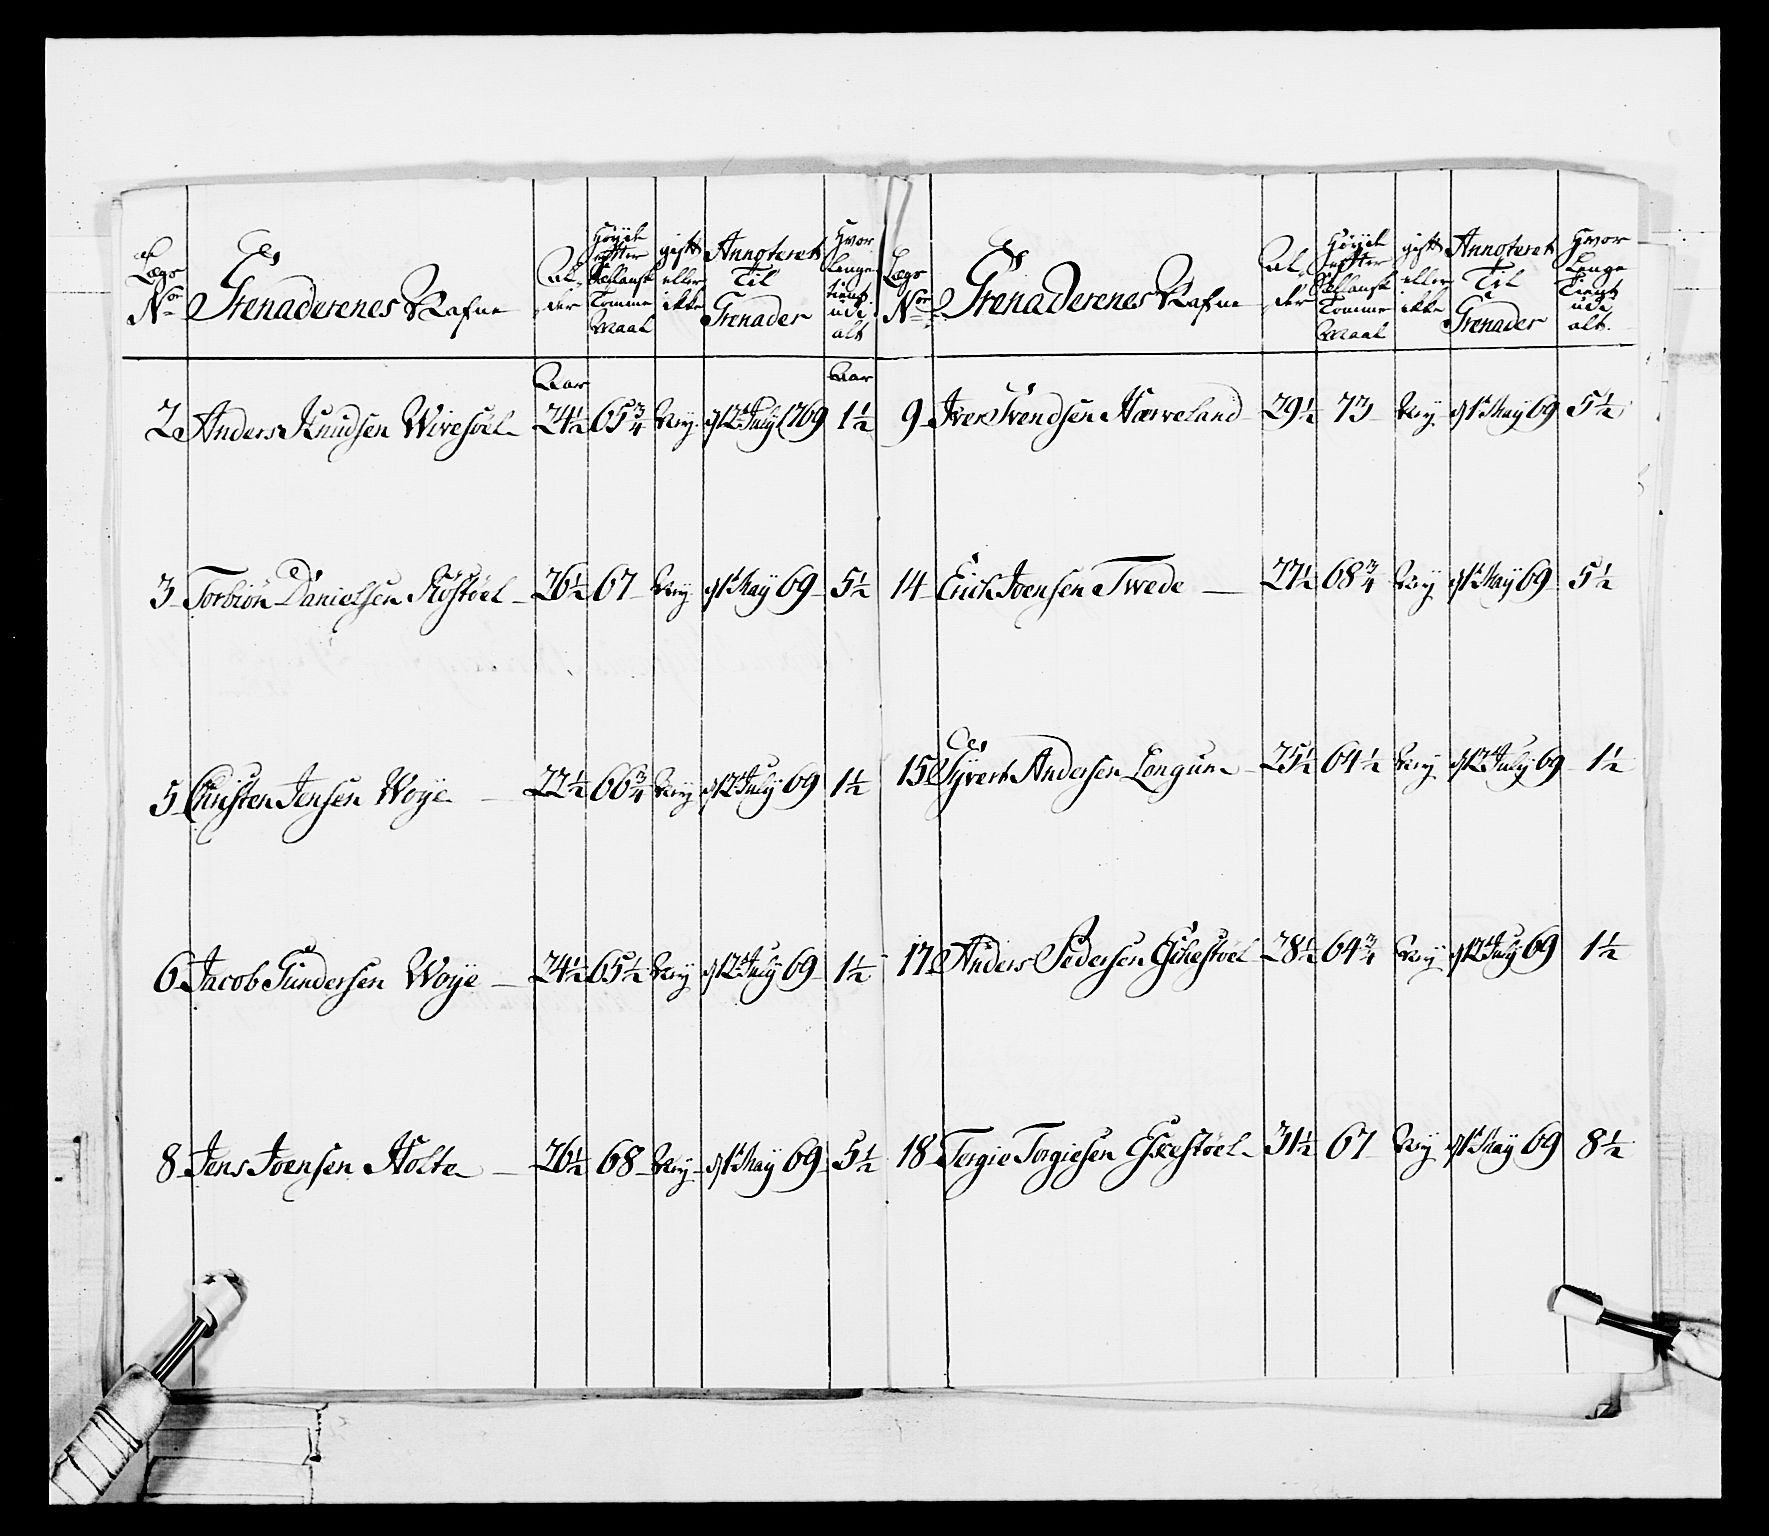 Lægs No
Grenaderenes Nafne
Al der
Höyde effter Siellansk Tomme Maal
gift eller ikke
Annoteret Til Grenader
Hvor Lenge tient udi alt
Aar
Aar
2 Anders Knudsen Wivestöel 24½ 65¾ Ney d 12t July 1769 1½
3 Torbiön Danielsen Röstöel 26½ 67 Ney d 1t May 69 5½
5 Christen Jensen Woye 22½ 66¾ Ney d 12t July 69 1½
6 Jacob Gundersen Woye 24½ 65½ Ney d 12t July 69 1½
8 Jens Joensen Holte 26½ 68 Ney d 1t May 69 5½
Lægs No
Grenaderenes Nafne
Al der
Höyde effter Siellansk Tomme Maal
gift eller ikke
Annoteret Til Grenader
Hvor Lenge Tient udi alt
9 Iver Svendsen Nærveland 29½ 73 Ney d 1t May 69 5½
14 Erich Joensen Twede 27½ 68¾ Ney d 1t May 69 5½
15 Syvert Andersen Longum 25½ 64½ Ney d 12t July 69 1½
17 Anders Pedersen Eskestöel 28½ 64¾ Ney d 12t July 69 1½
18 Tergie Torgiesen Eskestöel 31½ 67 Ney d 1t May 69 8½